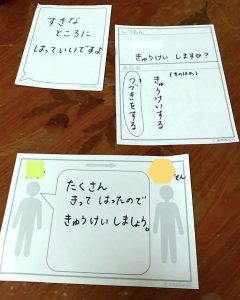 すきな
ところに
はっていいですよ
しつもん
きゅうけい しますか?
えらぶ
(そのほか)
きゅうけいする
つづきをする
さん
たくさん
きって はったので
きゅうけい しましょう。